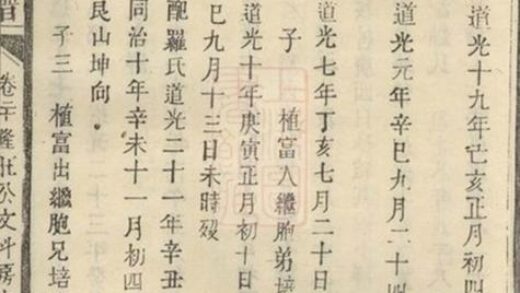 道光十九年己亥正月初四
道光元年辛巳九月二十四
道光七年丁亥七月二十日
子 植富入繼胞弟培
道光十年庚寅正月初十日
巳九月十三日未時歿
配羅氏道光二十一年辛丑
同治十年辛未十一月初四
艮山坤向.
子三 植富出繼胞兄培
隆壯公文斗房